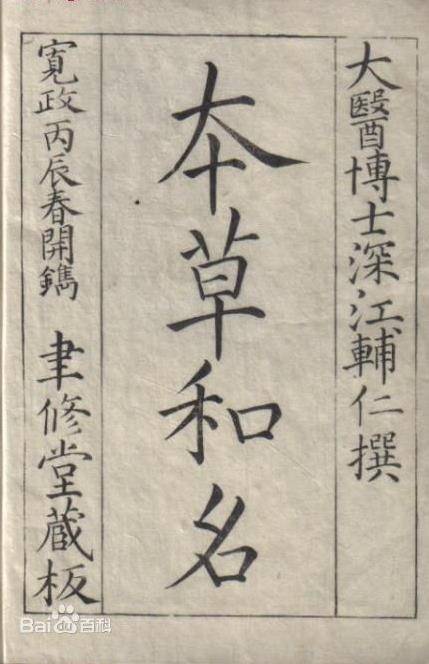 大醫博士深江輔仁撰
夲草和名
寛政丙辰春開鐫 聿修堂蔵板
Bai du 百科